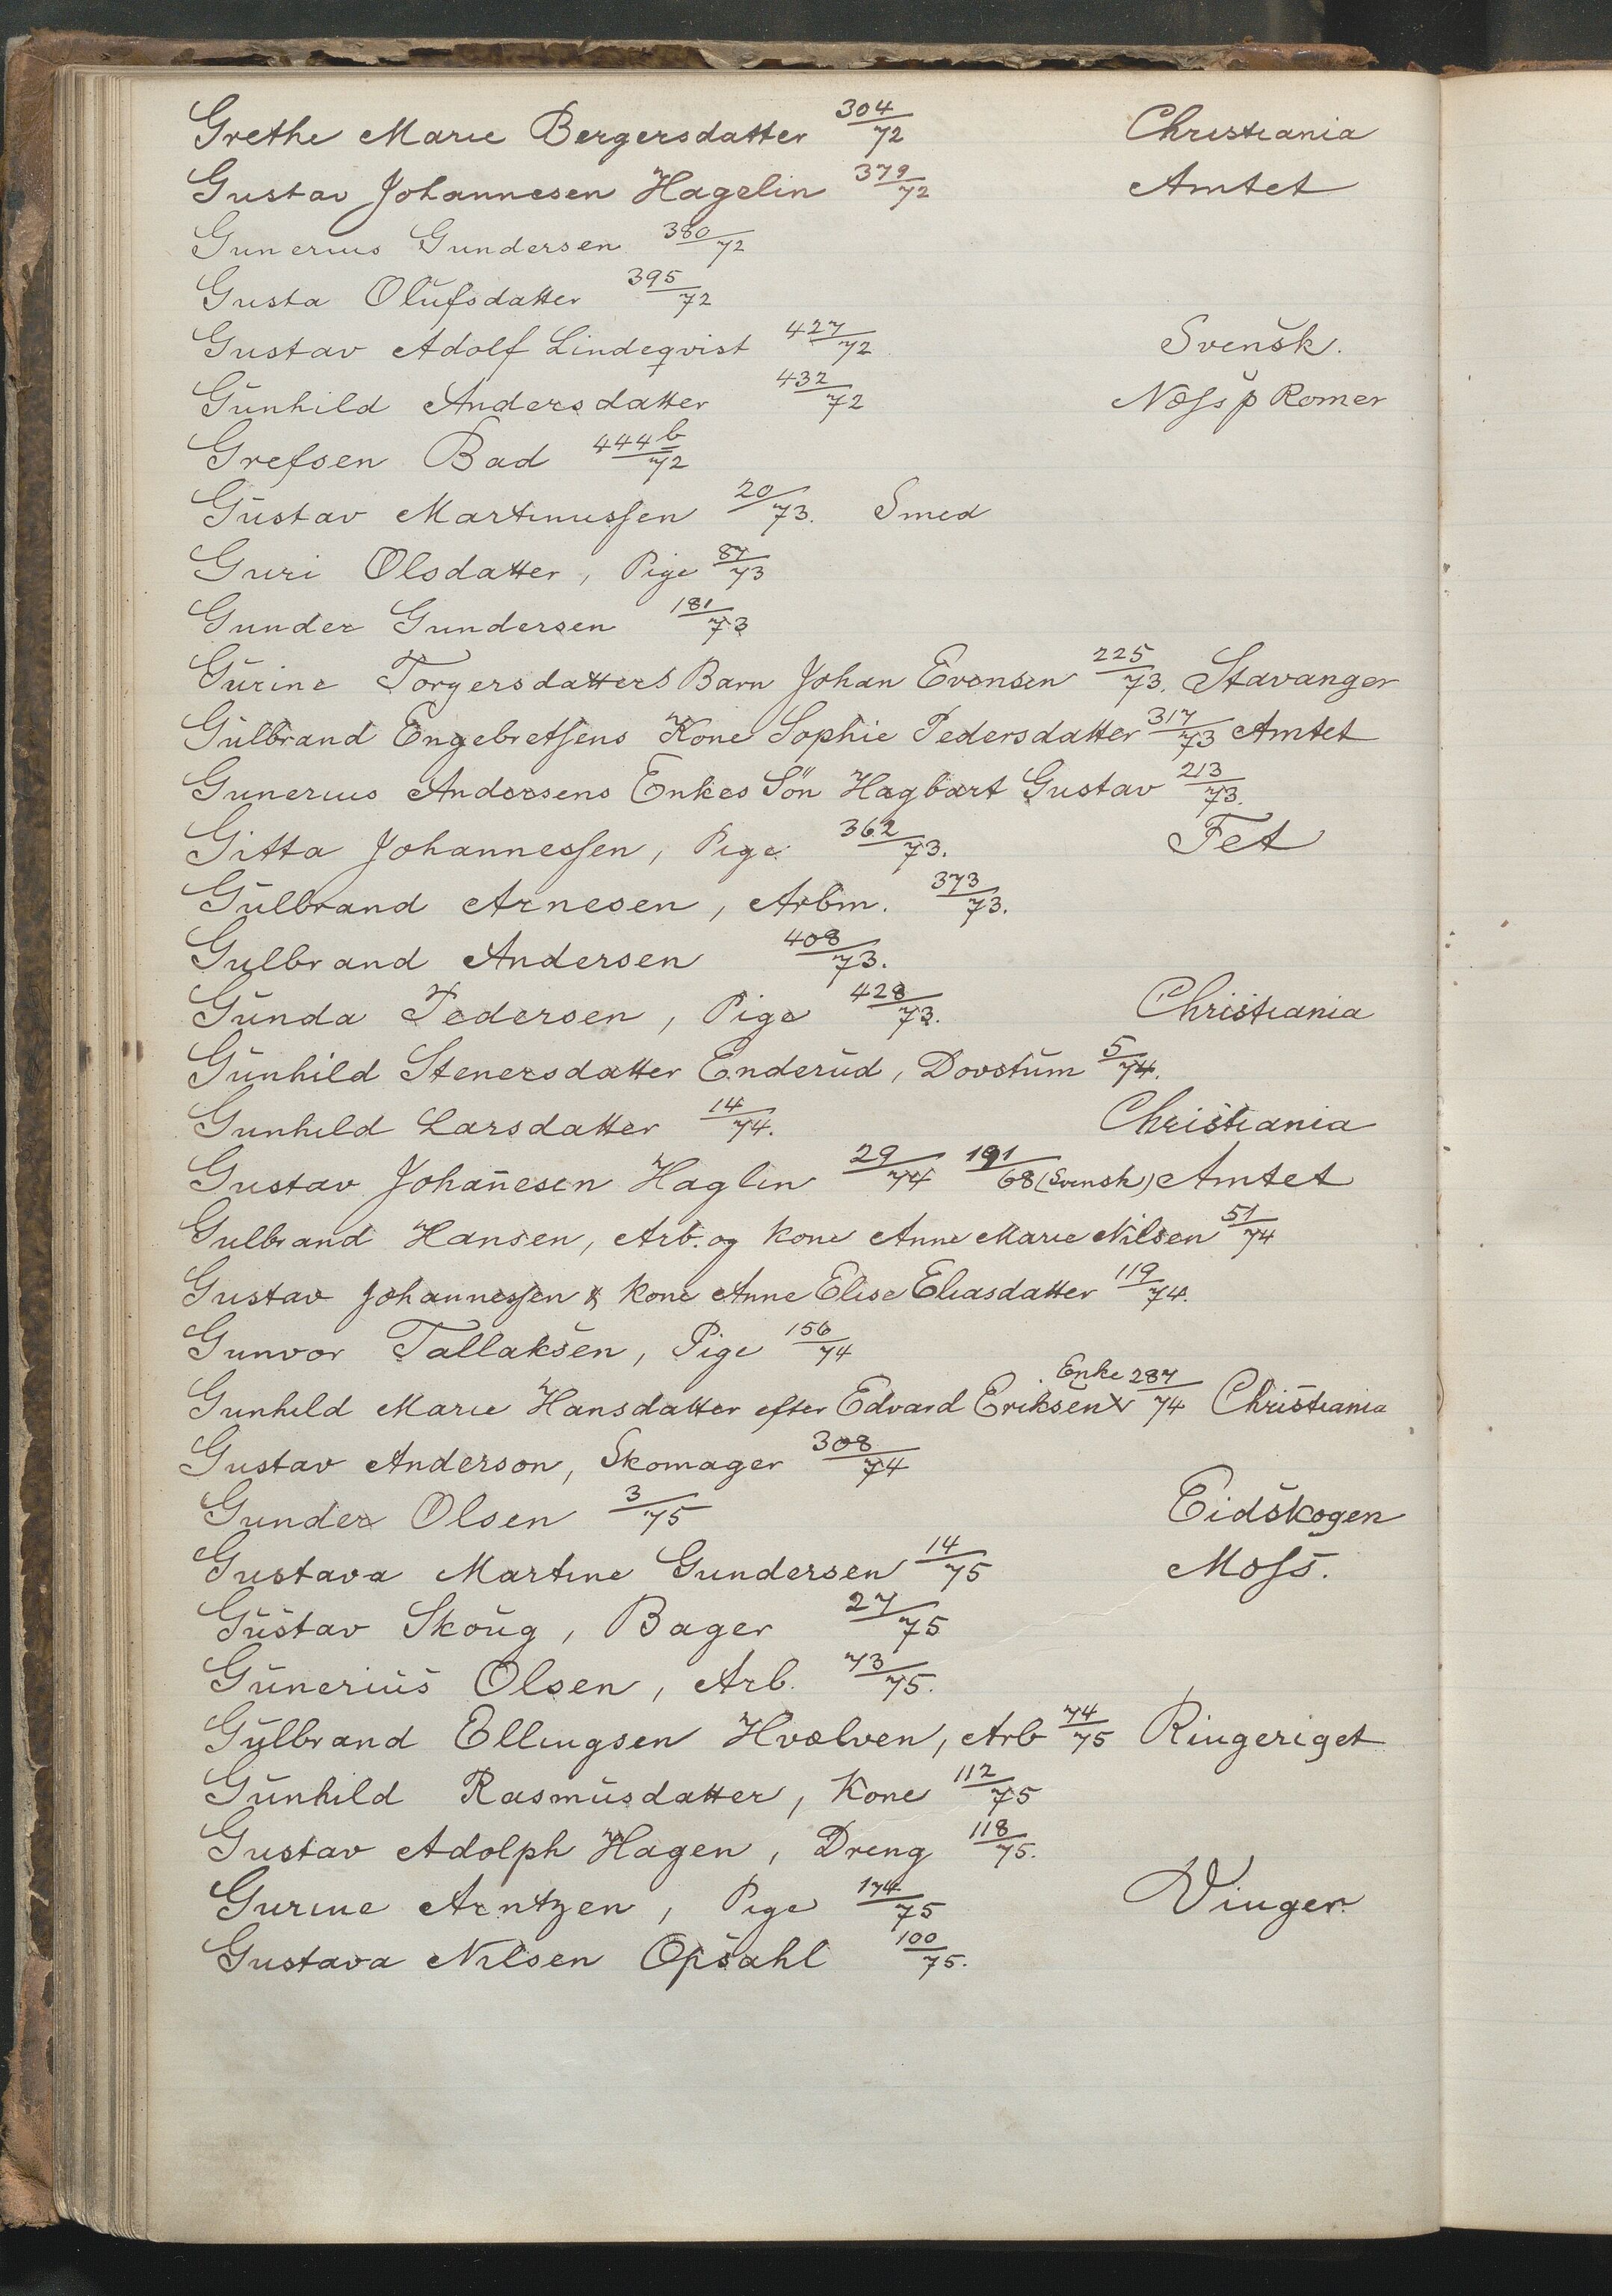 Grethe Marie Bergersdatter 304/72 Christiania
Gustav Johannesen Hagelin 379/72 Amtet
Gunerius Gundersen 380/72
Gusta Olufsdatter 395/72
Gustav Adolf Lindeqvist 427/72 Svensk.
Gunhild Andersdatter 432/72 Næss p Romer
Grefsen Bad 444b/72
Gustav Martinussen 20/73. Smed
Guri Olsdatter, Pige 87/73
Gunder Gundersen 181/73
Gurine Torgersdatters Barn Johan Evensen 225/73. Stavanger
Gulbrand Engebretsens Kone Sophie Pedersdatter 317/73 Amtet
Gunerius Andersens Enkes Sön Hagbart Gustav 213/73.
Gitta Johannessen, Pige 362/73. Fet
Gulbrand Arnesen, Arbm. 373/73.
Gulbrand Andersen 408/73.
Gunda Pedersen, Pige 428/73. Christiania
Gunhild Stenersdatter Enderud, Dovstum 5/74.
Gunhild Larsdatter 14/74. Christiania
Gustav Johan̄esen Haglin 29/74 191/68 (Svensk) Amtet
Gulbrand Hansen, Arb. og kone Anne Marie Nilsen 51/74
Gustav Johannessen & kone Anne Elise Eliasdatter 119/74.
Gunvor Tallaksen, Pige 156/74
Gunhild Marie Hansdatter efter Edvard Eriksen Enke 287/74 Christiania
Gustav Anderson, Skomager 308/74
Gunder Olsen 3/75 Eidskogen
Gustava Martine Gundersen 14/75 Moss.
Gustav Skoug, Bager 27/75
Gunerius Olsen, Arb. 73/75.
Gulbrand Ellingsen Hvælven, Arb 74/75 Ringeriget
Gunhild Rasmusdatter, Kone 112/75
Gustav Adolph Hagen, Dreng 118/75.
Gurine Arntzen, Pige 174/75 Vinger.
Gustava Nilsen Opsahl 100/75.